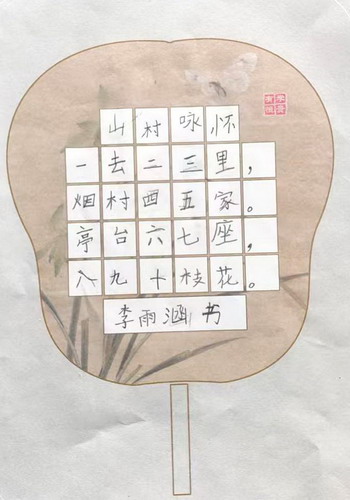 山村咏怀
一去二三里，
烟村四五家。
亭台六七座，
八九十枝花。
李雨涵书